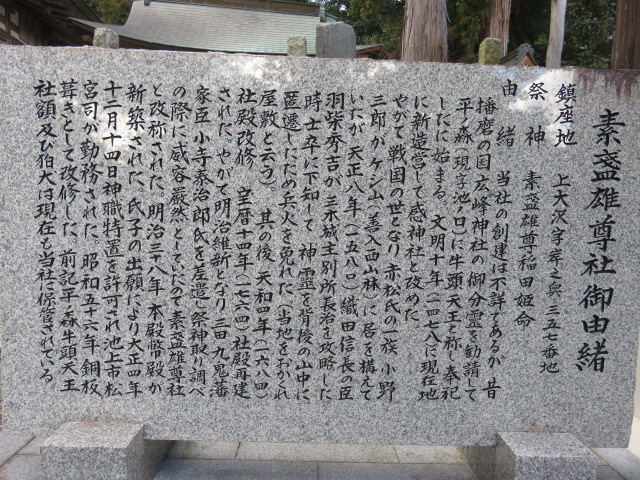 素盞雄尊社御由緒
鎮座地 上大沢字葬之奥一三五七番地
祭神 素盞雄尊稲田姫命
由緒 当社の創建は不詳であるが、昔
播磨の国広峰神社の御分霊を勧請して
平ノ森(現字池ノ口)に牛頭天王と称し奉祀
したに始まる。文明十年(一四七八)に現在地
に新造営して感神社と改めた。
やがて戦国の世となり赤松氏の一族 小野
三郎がケン山(善入西山林)に居を構えて
いたが天正八年(一五八〇)織田信長の臣
羽柴秀吉が三木城主別所長治を攻略した
時士卒に下知して 神霊を背後の山中に
匿遷したため兵火を免れた(当地をおかくれ
屋敷と云う)。其の後 天和四年(一六八四)
社殿改修 宝暦十四年(一七六四)社殿再建
された。やがて明治維新となり三田九鬼藩
家臣小寺泰治郎氏を差遣し祭神取り調べ
の際に威容厳然としていたので素盞雄尊社
と改称された。明治三十八年 本殿幣殿が
新築された。氏子の出願により大正四年
十二月十四日神職特置を許可され池上市松
宮司が勤務された。昭和五十六年 銅板
葺きとして改修した。前記平ノ森牛頭天王
社額及び狛犬は現在も当社に保管されている。